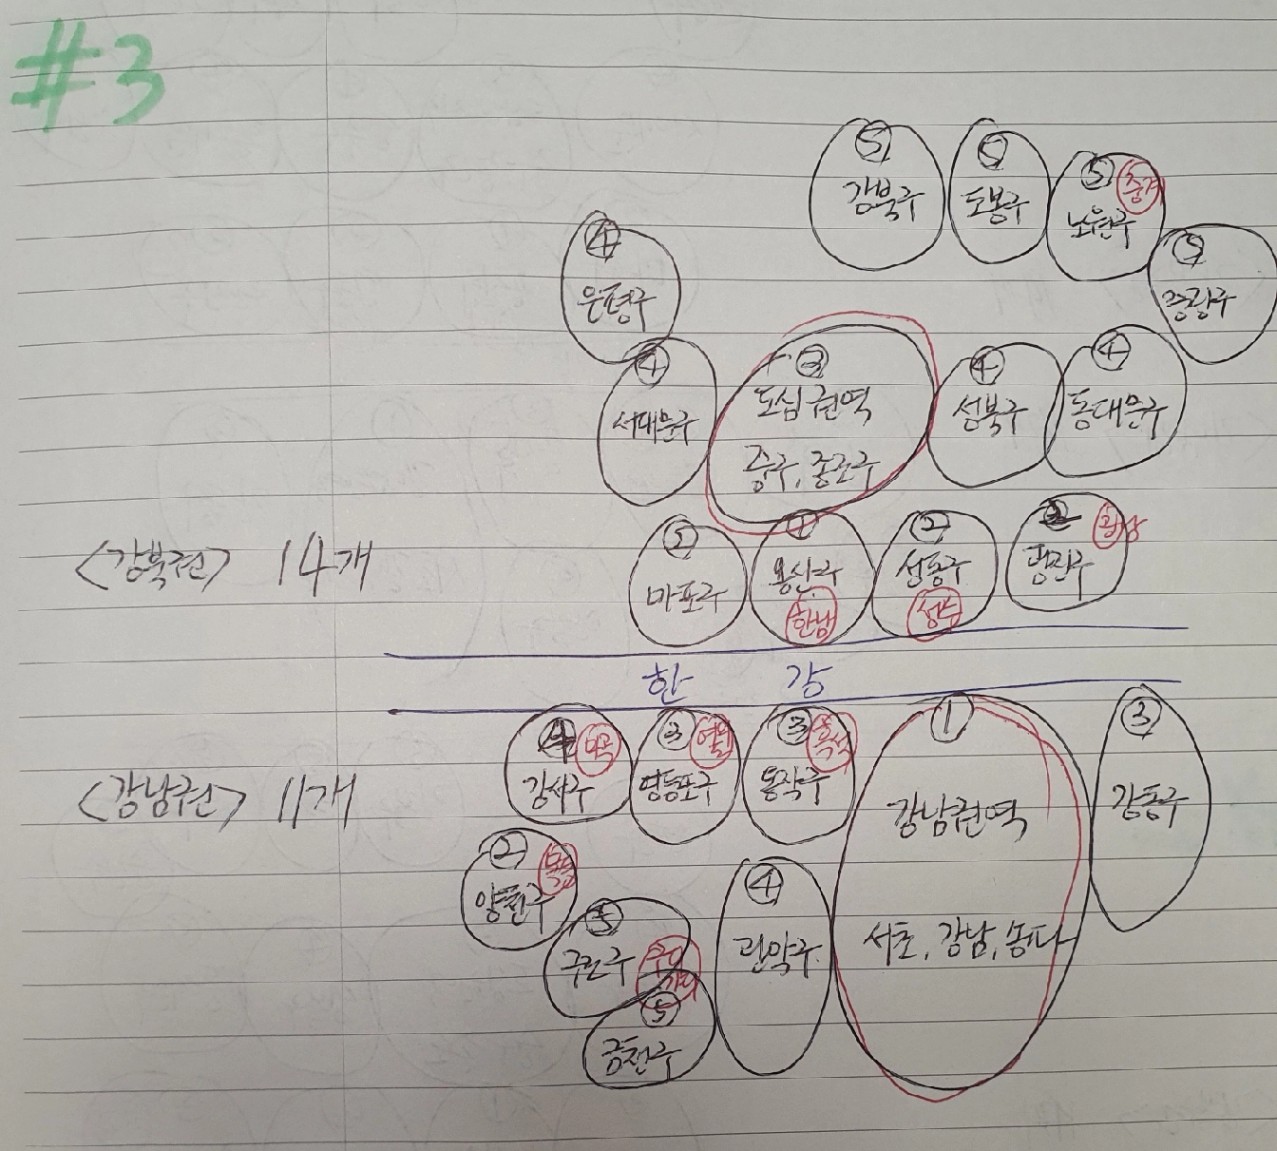 #3
⑤ 강북구
⑤ 도봉구
⑤ 중계
노원구
⑤ 중랑구
④ 은평구
④ 서대문구
② 도심권역
중구, 종로구
④ 성북구
④ 동대문구
<강북권> 14개
② 마포구
① 용산구
한남
② 성동구
성수
광진구
한 강
<강남권> 11개
④ 마곡
강서구
③
영등포구
③ 흑석
동작구
①
강남권역
서초, 강남, 송파
③
강동구
② 목동
양천구
구로구
⑤
금천구
④
관악구